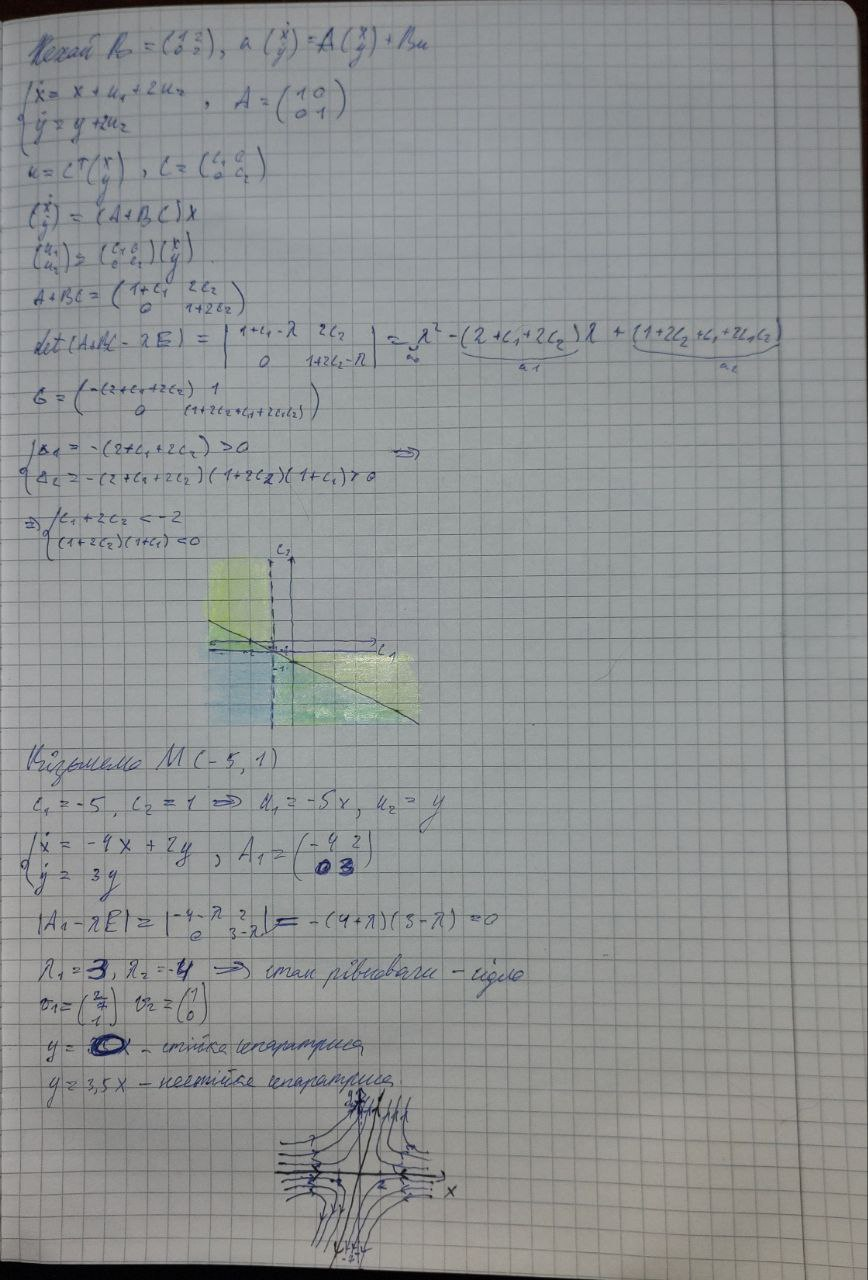 Нехай B₀ = (1 2; 0 2), а (ẋ; ẏ) = A(x; y) + Bu
{ẋ = x + u₁ + 2u₂; ẏ = y + 2u₂, A = (1 0; 0 1)
u = Cᵀ(x; y), C = (c₁ 0; 0 c₂)
(ẋ; ẏ) = (A+BC)X
(u₁; u₂) = (c₁ 0; 0 c₂)(x; y).
A+BC = (1+c₁ 2c₂; 0 1+2c₂)
det(A+BC - λE) = |1+c₁-λ 2c₂; 0 1+2c₂-λ| = λ² - (2+c₁+2c₂)λ + (1+2c₂+c₁+2c₁c₂)
a₀ a₁ a₂
G = (-(2+c₁+2c₂) 1; 0 (1+2c₂+c₁+2c₁c₂))
{Δ₁ = -(2+c₁+2c₂) > 0; Δ₂ = -(2+c₁+2c₂)(1+2c₂)(1+c₁) > 0 ⇒
⇒ {c₁+2c₂ < -2; (1+2c₂)(1+c₁) < 0
c₂
-2 -1 c₁
-1
Візьмемо M(-5, 1)
c₁ = -5, c₂ = 1 ⇒ u₁ = -5x, u₂ = y
{ẋ = -4x + 2y; ẏ = 3y, A₁ = (-4 2; 0 3)
|A₁-λE| = |-4-λ 2; 0 3-λ| = -(4+λ)(3-λ) = 0
λ₁ = 3, λ₂ = -4 ⇒ стан рівноваги - сідло
v₁ = (2/7; 1) v₂ = (1; 0)
y = 0 - стійка сепаратриса
y = 3,5x - нестійка сепаратриса
x